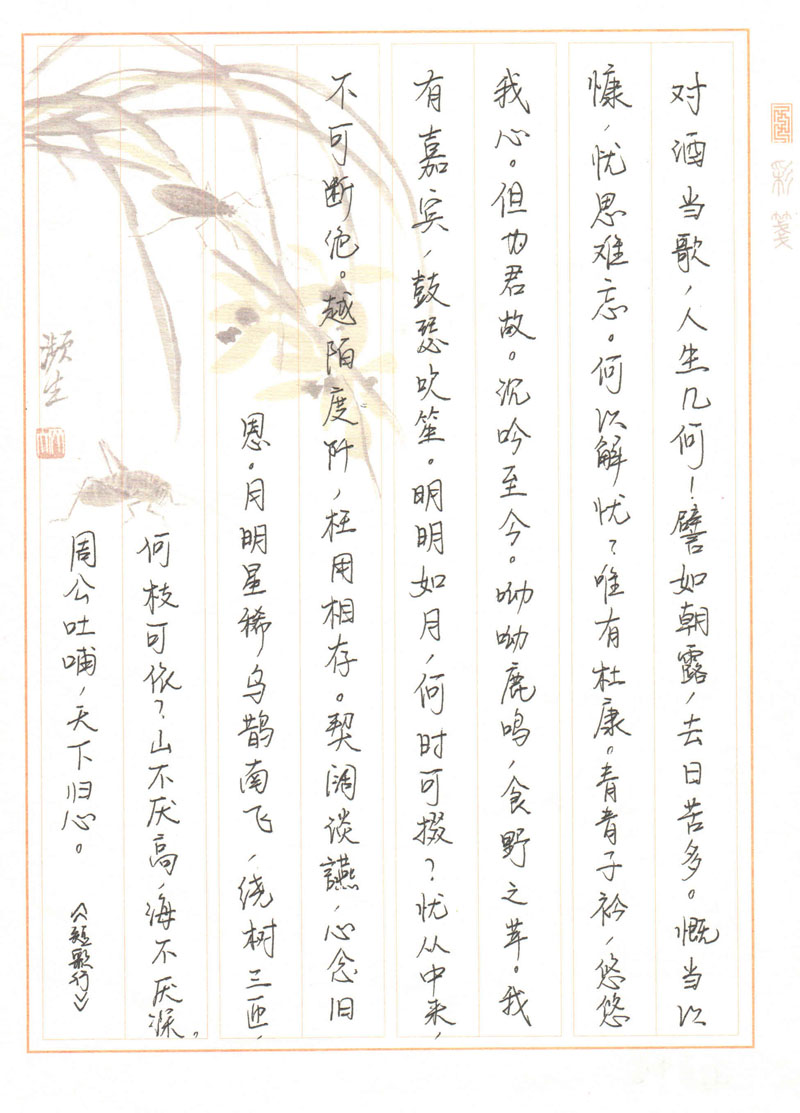 对酒当歌,人生几何!譬如朝露,去日苦多。慨当以
慷,忧思难忘。何以解忧?唯有杜康。青青子衿,悠悠
我心。但为君故。沉吟至今。呦呦鹿鸣,食野之苹。我
有嘉宾,鼓瑟吹笙。明明如月,何时可掇?忧从中来,
不可断绝。越陌度阡,枉用相存。契阔谈讌,心念旧
恩。月明星稀,乌鹊南飞,绕树三匝,
何枝可依?山不厌高,海不厌深。
周公吐哺,天下归心。
《短歌行》
濒生
彩笺